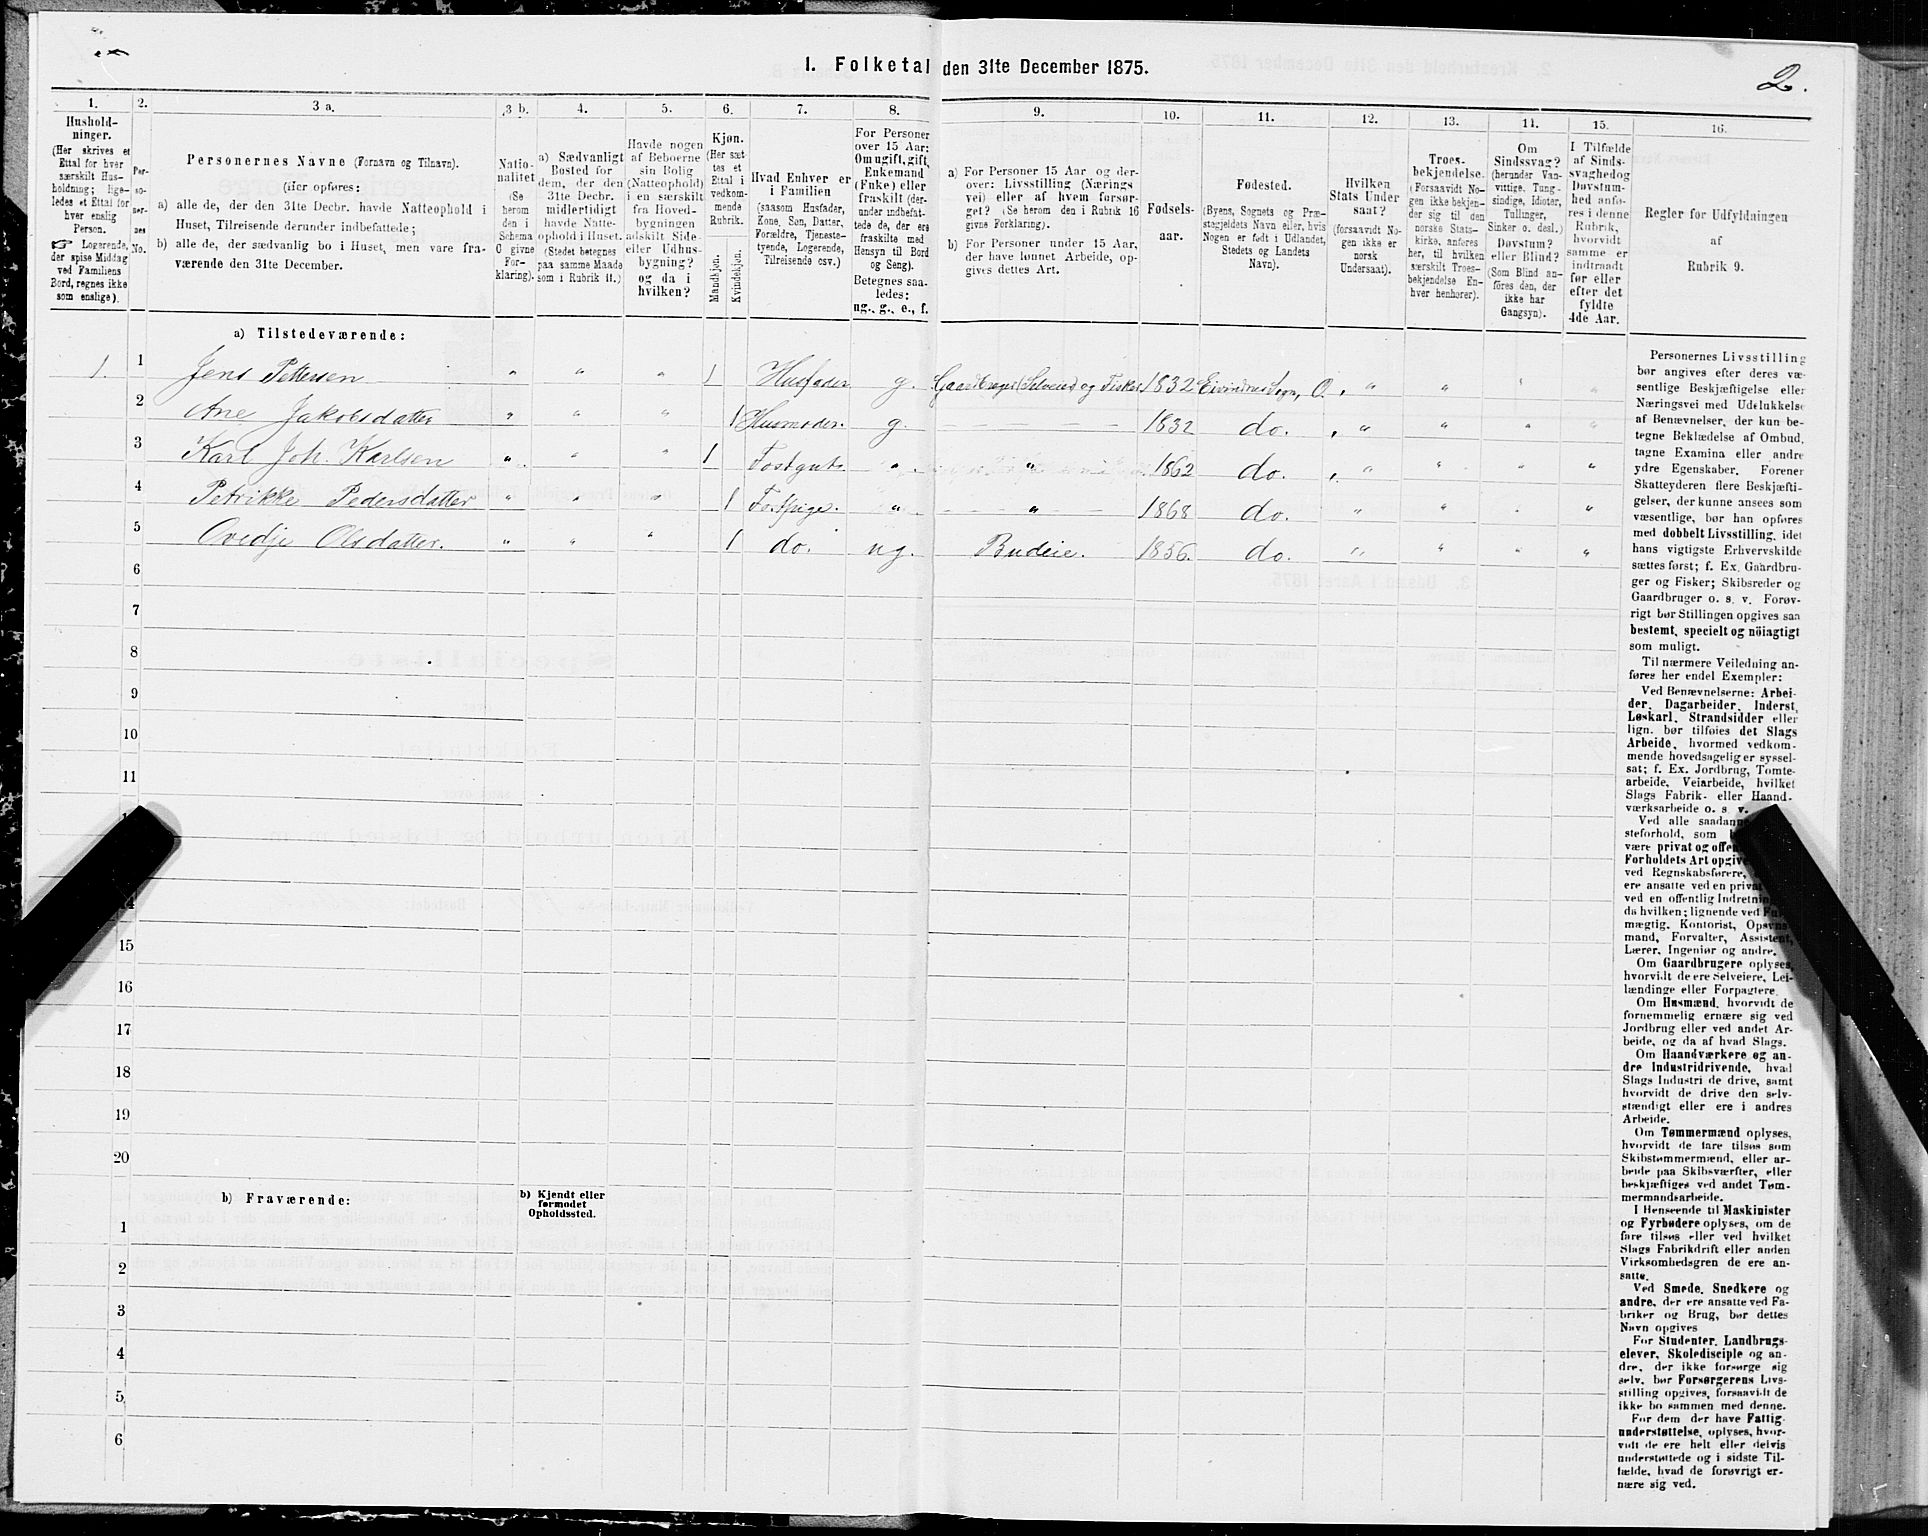 1. Folketal den 31te December 1875.
2.
1.
Hushold-
ninger.
(Her skrives et
Ettal for hver
særskilt Hus-
holdning; lige-
ledes et Ettal for
hver enslig
Person.
☞ Logerende,
der spise Middag
ved Familiens
Bord, regnes ikke
som enslige).
2.
Per-
so-
ner-
nes
No.
3 a.
Personernes Navne (Fornavn og Tilnavn).
(Her opføres:
a) alle de, der den 31te Decbr. havde Natteophold i
Huset, Tilreisende derunder indbefattede;
b) alle de, der sædvanlig bo i Huset, men vare fra-
værende den 31te December.
3 b.
Natio-
nalitet
(Se
herom
den i
Schema
O givne
For-
klaring).
4.
a) Sædvanligt
Bosted for
dem, der den
31te Decbr.
midlertidigt
havde Natte-
ophold i Huset.
(Stedet betegnes
paa samme Maade
som i Rubrik 11.)
5.
Havde nogen
af Beboerne
sin Bolig
(Natteophold)
i en særskilt
fra Hoved-
bygningen
adskilt Side-
eller Udhus-
bygning?
og da i
hvilken?
6.
Kjøn.
(Her sæt-
tes et
Ettal i
vedkom-
mende
Rubrik.
Mandkjøn.
Kvindekjøn.
7.
Hvad Enhver er
i Familien
(saasom Husfader,
Kone, Søn, Datter,
Forældre, Tjeneste-
tyende, Logerende,
Tilreisende osv.)
8.
For Personer
over 15 Aar:
Om ugift, gift,
Enkemand
(Enke) eller
fraskilt (der-
under indbefat-
tede de, der ere
fraskilte med
Hensyn til Bord
og Seng).
Betegnes saa-
ledes:
ug., g., e., f.
9.
a) For Personer 15 Aar og der-
over: Livsstilling (Nærings
vei) eller af hvem forsør-
get? (Se herom den i Rubrik 16
givne Forklaring).
b) For Personer under 15 Aar,
der have lønnet Arbeide, op-
gives dettes Art.
10.
Fødsels-
aar.
11.
Fødested.
(Byens, Sognets og Præ-
stegjeldets Navn eller, hvis
Nogen er født i Udlandet,
Stedets og Landets
Navn).
12.
Hvilken
Stats Under
saat?
(forsaavidt No-
gen ikke er
norsk
Undersaat).
13.
Troes-
bekjendelse.
(Forsaavidt No-
gen ikke bekjen-
der sig til den
norske Stats-
kirke, anføres
her, til hvilken
særskilt Troes-
bekjendelse En-
hver henhører).
14.
Om
Sindssvag?
(herunder Van-
vittige, Tung-
sindige, Idioter,
Tullinger,
Sinker o. desl.)
Døvstum?
eller Blind?
(Som Blind an-
føres den, der
ikke har
Gangsyn).
15.
I Tilfælde
af Sinds-
svaghed og
Døvstum-
hed anfø-
res i denne
Rubrik,
hvorvidt
samme er
indtraadt
før eller
efter det
fyldte
4de Aar.
16.
Regler for Udfyldningen
af
Rubrik 9.
a) Tilstedeværende:
1. 1 Jens Pettersen " " " 1 Husfader g. Gaardbruger (Selveier) og Fisker 1832 Eivindvig Sogn, " " " "
2 Ane Jakobsdatter " " " 1 Husmoder. g. 1832 do. " " " "
3 Karl Joh. Karlsen " " " 1 Fostgut " " 1862 do. " " " "
4 Petrikke Pedersdatter " " " 1 Fostpige. " " 1868 do. " " " "
5 Ovedje Olsdatter. " " " 1 do. ug. Budeie. 1856. do. " " " "
6
7
8
9
10
11
14
15
16
17
18
19
20
b) Fraværende:
b) Kjendt eller
formodet
Opholdssted.
1
2
3
4
5
6
Personernes Livsstilling
bør angives efter deres væ-
sentlige Beskjæftigelse eller
Næringsvei med Udelukkelse
af Benævnelser, der kun be-
tegne Beklædelse af Ombud,
tagne Examina eller andre
ydre Egenskaber. Forener
Skatteyderen flere Beskjæfti-
gelser, der kunne ansees som
væsentlige, bør han opføres
med dobbelt Livsstilling, idet
hans vigtigste Erhvervskilde
sættes først; f. Ex. Gaardbru-
ger og Fisker; Skibsreder og
Gaardbruger o. s. v. Forøv-
rigt bør Stillingen opgives saa
bestemt, specielt og nöiagtigt
som muligt.
Til nærmere Veiledning an-
føres her endel Exempler:
Ved Benævnelserne: Arbei-
der, Dagarbeider, Inderst,
Løskarl, Strandsidder eller
lign. bør tilføies det Slags
Arbeide, hvormed vedkom-
mende hovedsagelig er syssel-
sat; f. Ex. Jordbrug, Tomte-
arbeide, Veiarbeide, hvilket
Slags Fabrik- eller Haand-
værksarbeide o. s. v.
Ved alle saadanne
steforhold, som
være privat og offen
Forholdets Art opgive
ved Regnskabsførere,
ere ansatte ved en privat
ved en offentlig Indretning
da hvilken; lignende ved Fuld-
mægtig, Kontorist, Opsyns
mand, Forvalter, Assistent,
Lærer, Ingeniør og andre.
Om Gaardbrugere oplyses,
hvorvidt de ere Selveiere, Lei-
lændinge eller Forpagtere.
Om Husmænd, hvorvidt de
fornemmelig ernære sig ved
Jordbrug eller ved andet Ar-
beide, og da af hvad Slags.
Om Haandværkere og an-
dre Industridrivende, hvad
Slags Industri de drive, samt
hvorvidt de drive den selv-
stændigt eller ere i andres
Arbeide.
Om Tømmermænd oplyses,
hvorvidt de fare tilsøs som
Skibstømmermænd, eller ar-
beide paa Skibsværfter, eller
beskjæftiges ved andet Tøm-
mermandsarbeide.
I Henseende til Maskinister
og Fyrbødere oplyses, om de
fare tilsøs eller ved hvilket
Slags Fabrikdrift eller anden
Virksomhedsgren de ere an-
satte.
Ved Smede, Snedkere og
andre, der ere ansatte ved Fa-
briker og Brug, bør dettes
Navn opgives
For Studenter, Landbrugs-
elever, Skoledisciple og an-
dre, der ikke forsørge sig
selv, bør Forsørgerens Livs-
stilling opgives, forsaavidt de
ikke bo sammen med denne.
For dem der have Fattig-
understøttelse, oplyses, hvor-
vidt de ere helt eller delvis
understøttede og i sidste Til-
fælde, hvad de forøvrigt er-
nære sig ved.